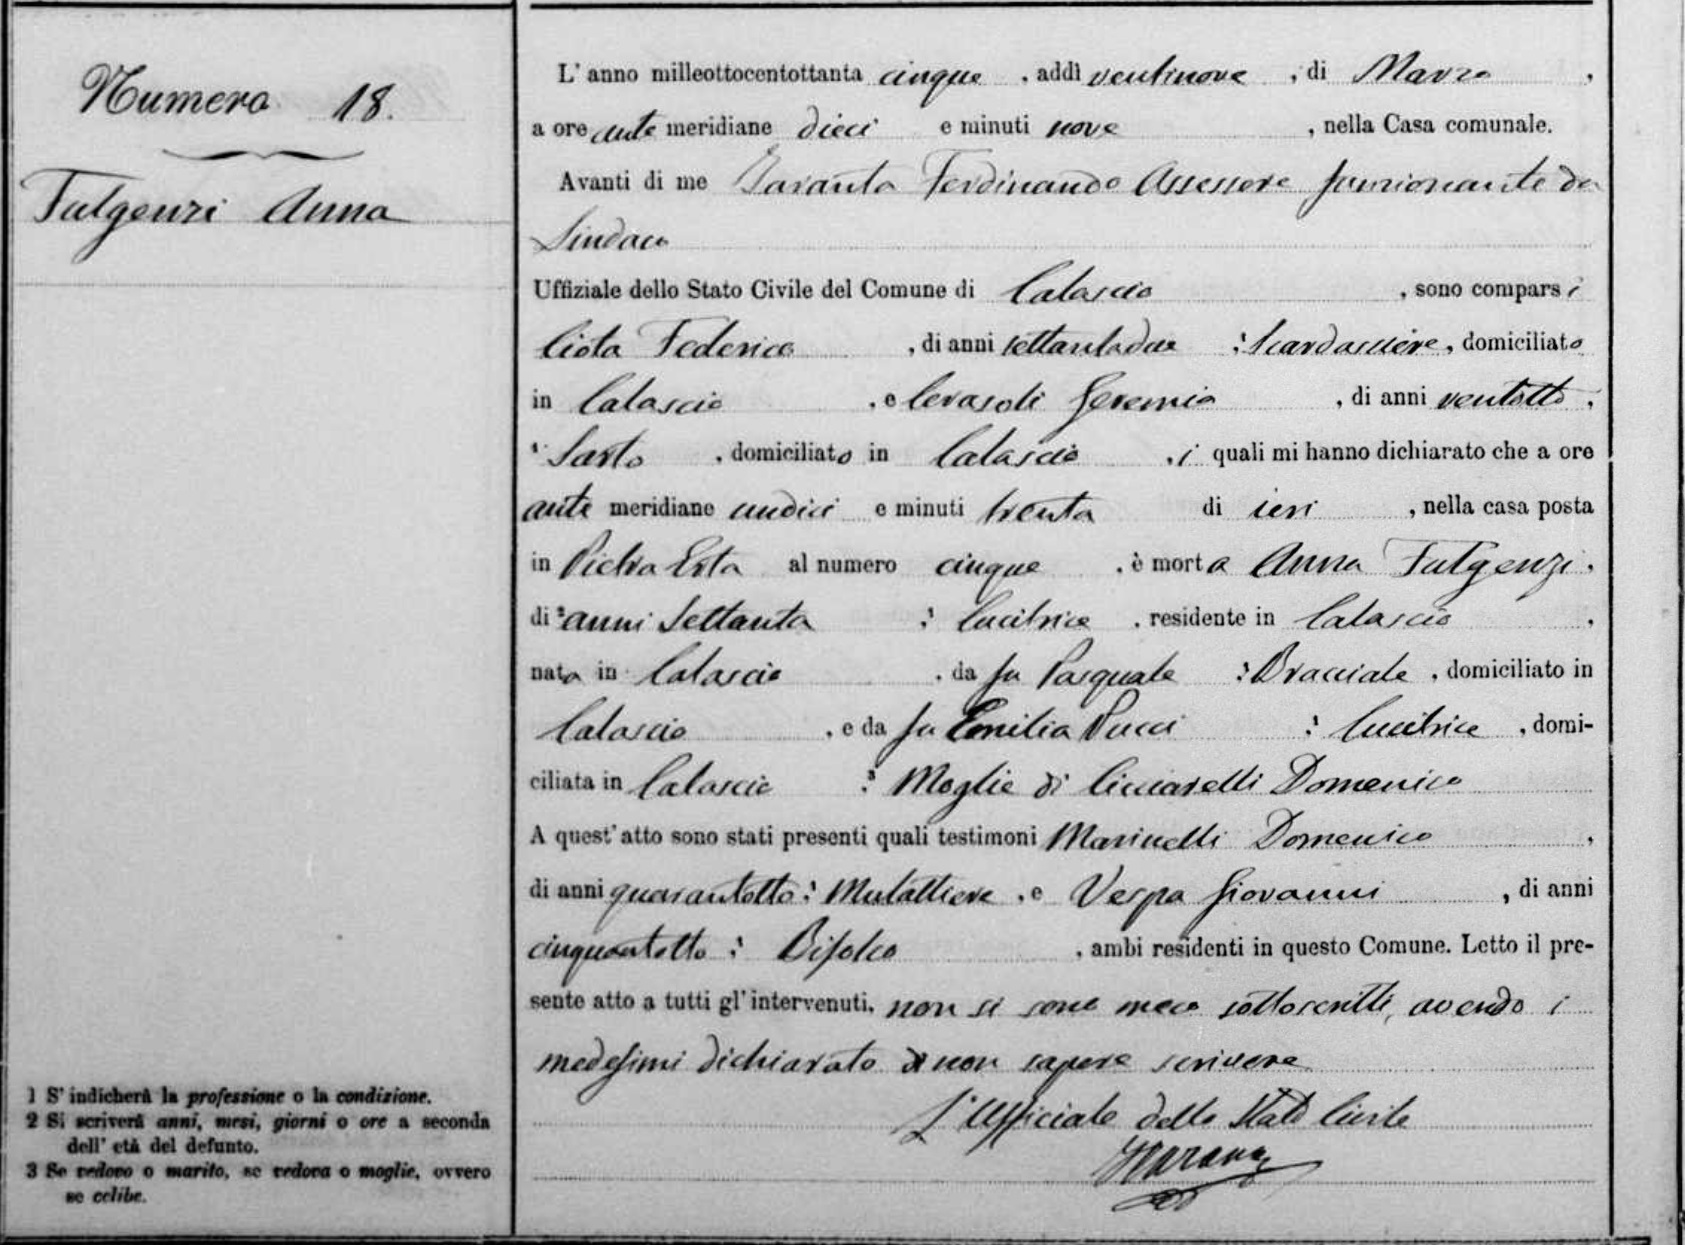 Numero 18.
Fulgenzi Anna
L'anno milleottocentottanta cinque, addì ventinove, di Marzo,
a ore ante meridiane dieci e minuti nove, nella Casa comunale.
Avanti di me Ferdinando Assessore funzionante da
Sindaco
Uffiziale dello Stato Civile del Comune di Calascio, sono comparsi
Ciota Federico, di anni settantadue ¹ Scardassiere, domiciliato
in Calascio, e Cerasoli Geremia, di anni ventotto,
¹ Sarto, domiciliato in Calascio, i quali mi hanno dichiarato che a ore
ante meridiane undici e minuti trenta di ieri, nella casa posta
in Pietra Erta al numero cinque, è morta Anna Fulgenzi,
di ² anni settanta ¹ Cucitrice, residente in Calascio,
nata in Calascio, da fu Pasquale ¹ Bracciale, domiciliato in
Calascio, e da fu Emilia Pucci ¹ Cucitrice, domi-
ciliata in Calascio ³ Moglie di Cicciarelli Domenico
A quest'atto sono stati presenti quali testimoni Marinelli Domenico,
di anni quarantotto ¹ Mulattiere, e Vespa Giovanni, di anni
cinquantotto ¹ Bifolco, ambi residenti in questo Comune. Letto il pre-
sente atto a tutti gl'intervenuti, non si sono meco sottoscritti, avendo i
medesimi dichiarato di non sapere scrivere
L'Ufficiale dello Stato Civile
1 S'indicherà la professione o la condizione.
2 Si scriverà anni, mesi, giorni o ore a seconda
dell'età del defunto.
3 Se vedovo o marito, se vedova o moglie, ovvero
se celibe.